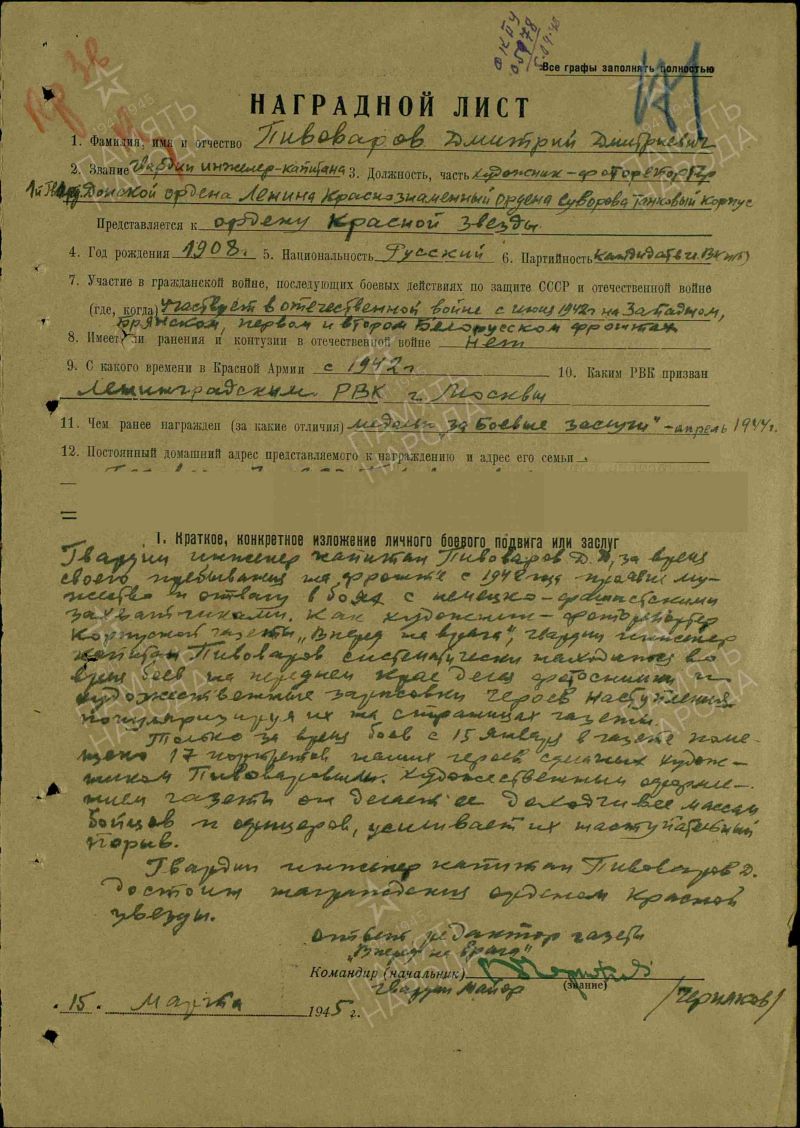 ОКПУ
059178
Все графы заполнять полностью
НАГРАДНОЙ ЛИСТ
1. Фамилия, имя и отчество Пивоваров Дмитрий Дмитриевич
2. Звание Гвардии инженер-капитана 3. Должность, часть художник-фоторепортер
1й Гвард. Донской ордена Ленина Краснознаменный ордена Суворова Танковый Корпус
Представляется к ордену Красной Звезды
4. Год рождения 1908г. 5. Национальность Русский 6. Партийность кандидат чл. ВКП(б)
7. Участие в гражданской войне, последующих боевых действиях по защите СССР и отечественной войне
(где, когда) участвует в отечественной войне с июня 1942г на Западном,
Брянском, первом и втором Белорусском фронтах
8. Имеет ли ранения и контузии в отечественной войне нет
9. С какого времени в Красной Армии с 1942г 10. Каким РВК призван
Ленинградским РВК г. Москвы
11. Чем ранее награжден (за какие отличия) медаль "за Боевые заслуги" - апрель 1944г.
12. Постоянный домашний адрес представляемого к награждению и адрес его семьи
I. Краткое, конкретное изложение личного боевого подвига или заслуг
Гвардии инженер капитан Пивоваров Д.Д, за время
своего пребывания на фронте с 1942 года проявил му-
жество и отвагу в боях с немецко-фашистскими
захватчиками. Как художник-фоторепортер
Корпусной газеты "Вперед на врага", гвардии инженер
капитан Пивоваров систематически находился во
время боев на переднем крае делая фотоснимки и
художественные зарисовки героев наступления
популяризируя их на страницах газеты.
Только за время боев с 15 января в газете поме-
щено 17 портретов наших героев сделанных худож-
ником Пивоваровым. Художественным оформле-
нием газеты он делает ее доходчивее массам
бойцов и офицеров, усиливает их наступательный
порыв.
Гвардии инженер капитан Пивоваров Д.
достоин награждения орденом Красной
звезды.
ответ редактор газеты
"Вперед на врага"
Командир (начальник)
Гвардии майор (звание)
"15" Марта 1945 г.
ПАМЯТЬ НАРОДА